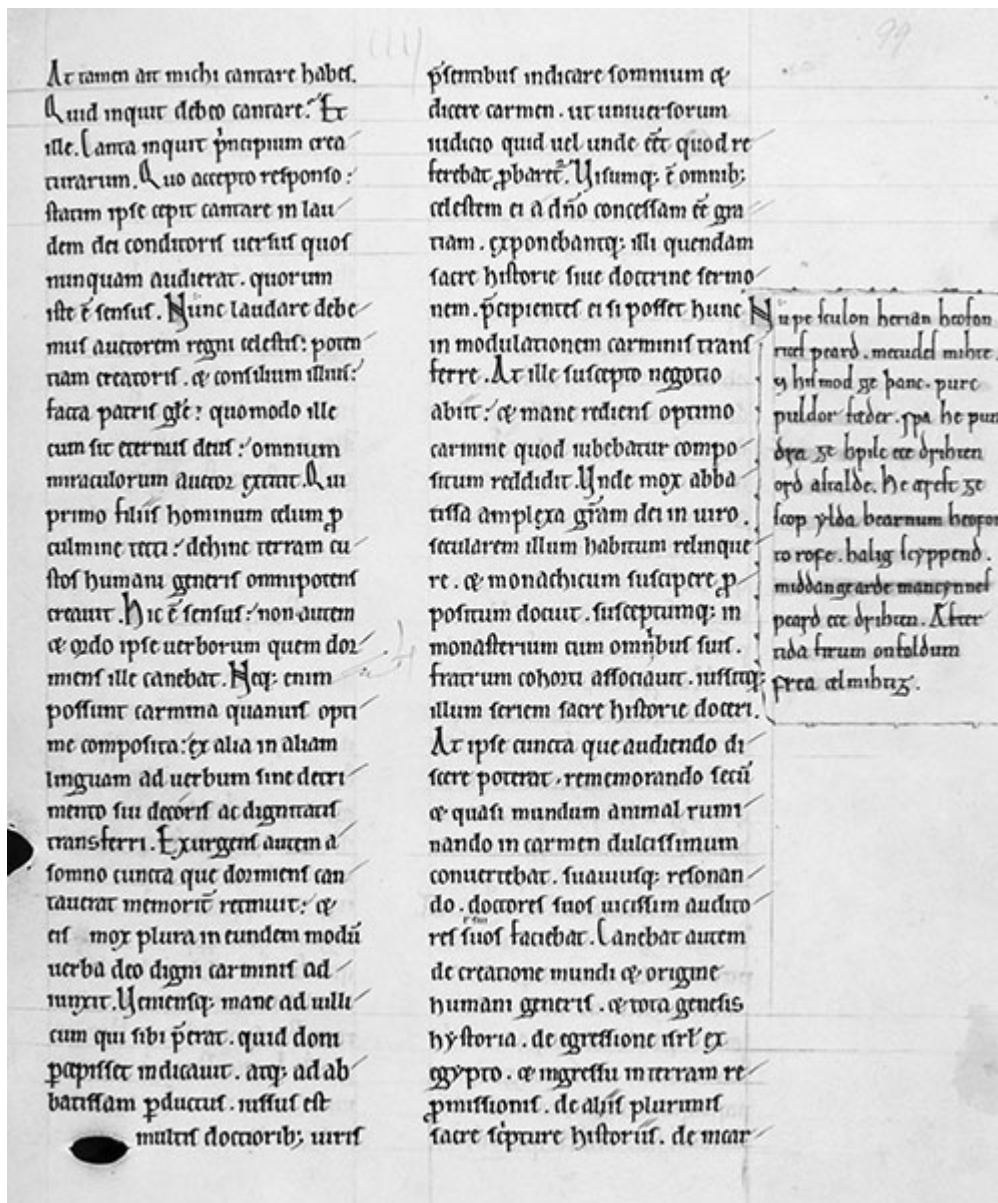 At tamen ait michi cantare habes.
Quid inquit debeo cantare? Et
ille. Canta inquit p̍ncipium crea
turarum. Quo accepto responso:
statim ipse cepit cantare in lau
dem dei conditoris uersus quos
nunquam audierat. quorum
iste ē sensus. Nunc laudare debe
mus auctorem regni celestis: poten
tiam creatoris. & consilium illius:
facta patris glē: quomodo ille
cum sit eternus deus: omnium
miraculorum auctor extitit. Qui
primo filiis hominum celum ꝓ
culmine tecti: dehinc terram cu
stos humani generis omnipotens
creauit. Hic ē sensus: non autem
& ordo ipse uerborum quem dor
miens ille canebat. Neq; enim
possunt carmina quanuis opti
me composita: ex alia in aliam
linguam ad uerbum sine detri
mento sui decoris ac dignitatis
transferri. Exurgens autem a
somno cuncta que dormiens can
tauerat memorit̄ retinuit: &
eis mox plura in eundem modū
uerba deo digni carminis ad
iunxit. Veniensq; mane ad uilli
cum qui sibi p̄erat. quid doni
ꝑcepisset indicauit. atq; ad ab
batissam ꝑductus. iussus est
multis doctiorib; uiris
p̄sentibus indicare somnium &
dicere carmen. ut uniuersorum
iudicio quid uel unde eēt quod re
ferebat ꝓbaret᷑. Visumq; ē omnib;
celestem ei a dn̄o concessam eē gra
tiam. exponebantq; illi quendam
sacre historie siue doctrine sermo
nem. p̄cipientes ei si posset hunc
in modulationem carminis trans
ferre. At ille suscepto negotio
abiit: & mane rediens optimo
carmine quod iubebatur compo
situm reddidit. Vnde mox abba
tissa amplexa gr̄am dei in uiro.
secularem illum habitum relinque
re. & monachicum suscipere ꝓ
positum docuit. susceptumq; in
monasterium cum omnibus suis.
fratrum cohorti associauit. iussitq;
illum seriem sacre historie doceri.
At ipse cuncta que audiendo di
scere poterat. rememorando secū
& quasi mundum animal rumi
nando in carmen dulcissimum
conuertebat. suauiusq; resonan
do. doctores suos uicissim audito
res suos faciebat. Canebat autem
de creatione mundi & origine
humani generis. & tota genesis
hystoria. de egressione isrl̄ ex
egypto. & ingressu in terram re
ꝓmissionis. de aliis plurimis
sacre sc̍pture historiis. de incar
Nu ƿe sculon herian heofon
rices ƿeard. metudes mihte.
⁊ his mod ge þanc. ƿurc
ƿuldor fæder. sƿa he ƿun
dra ge hƿilc ece drihten
ord astalde. He ærest ge
scop ylda bearnum heofon
to rofe. halig scyppend.
middangearde mancynnes
ƿeard ece drihten. Æfter
tida firum on foldum
frea ælmihtig.